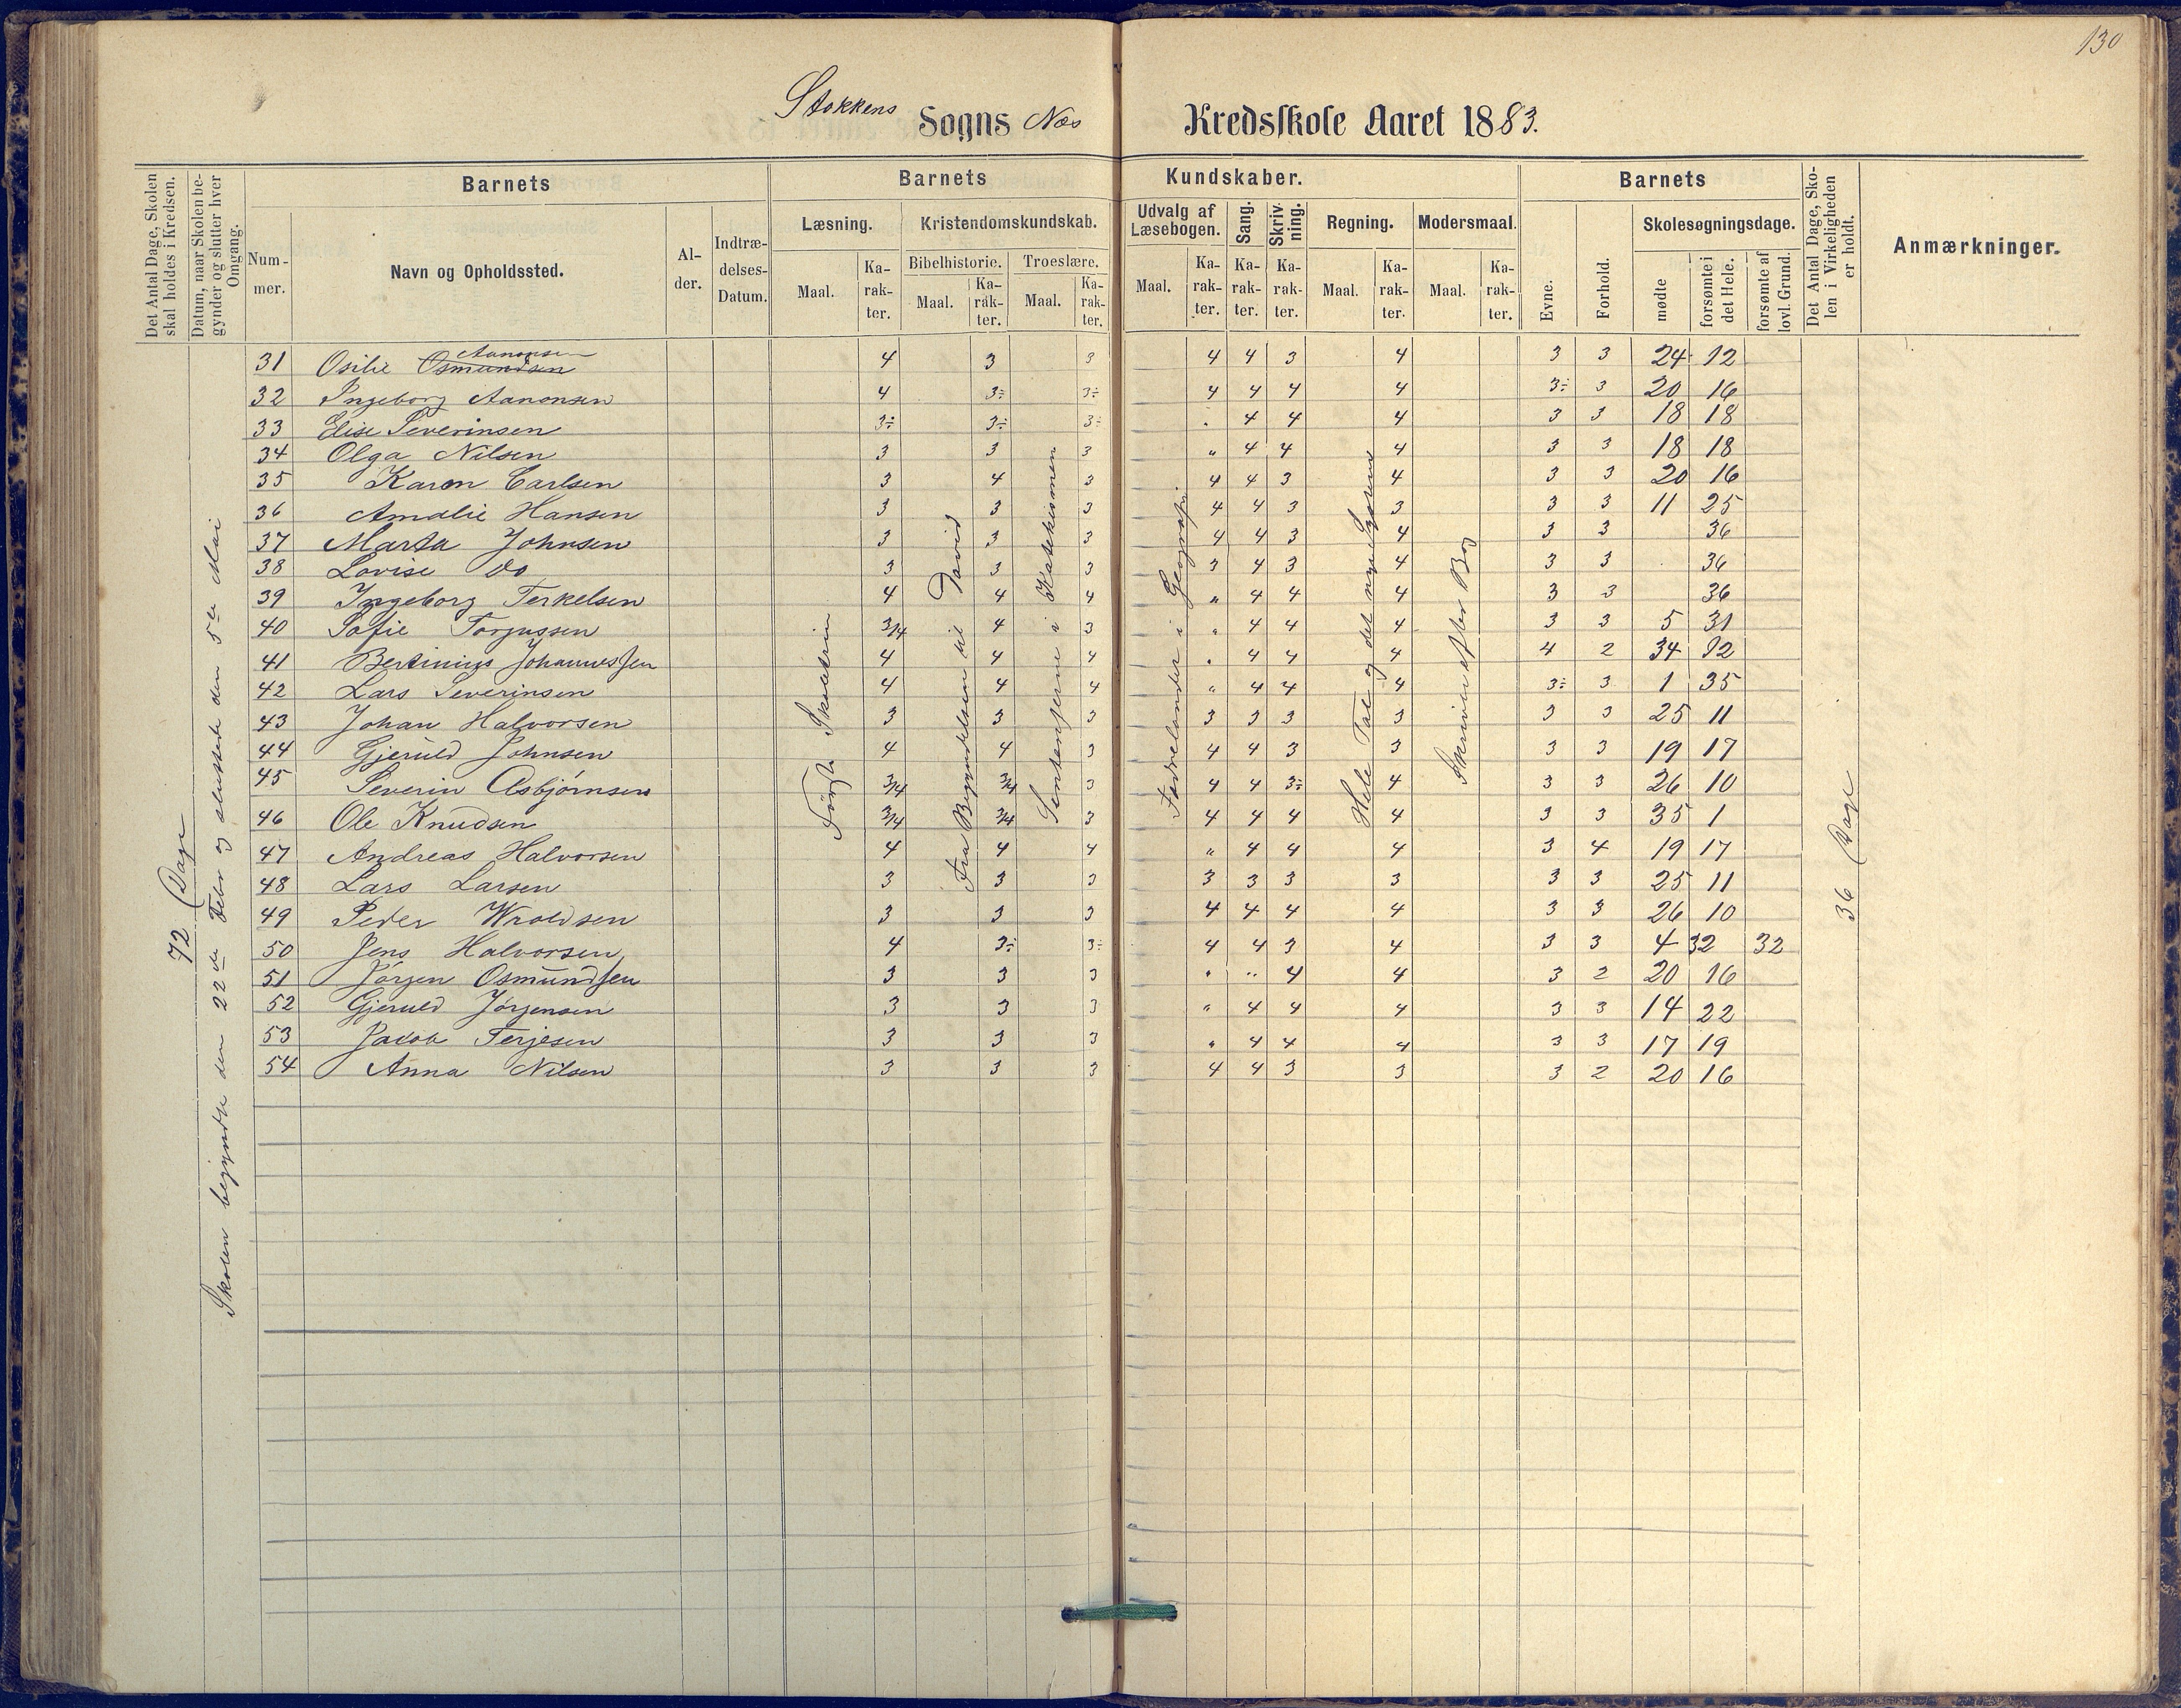 130
Stokkens Sogns Næs Kredsskole Aaret 1883.
Det Antal Dage, Skolen skal holdes i Kredsen.
Datum, naar Skolen begynder og slutter hver Omgang.
Barnets
Barnets Kundskaber.
Barnets
Det Antal Dage, Skolen i Virkeligheden er holdt.
Anmærkninger.
Nummer.
Navn og Opholdssted.
Alder.
Indtrædelses-Datum.
Læsning.
Kristendomskundskab.
Udvalg af Læsebogen.
Sang.
Skrivning.
Regning.
Modersmaal.
Evne.
Forhold.
Skolesøgningsdage.
Bibelhistorie. Troeslære.
Maal. Karakter. Maal. Karakter. Maal. Karakter. Maal. Karakter. Karakter. Karakter. Maal. Karakter. Maal. Karakter.
mødte
forsømte i det Hele.
forsømte af lovl. Grund.
72 Dage
Skolen begyndte den 22de Febr og sluttede den 5te Mai
Første
Fra Begyndelsen til David
i Katekismen
Fædrelandet i Geografi
Hele Tal og det nye System
Skriven efter Bog
36 Dage
31 Osilie Osmundsen Aanonsen 4 3 3 4 4 3 4 3 3 24 12
32 Ingeborg Aanonsen 4 3÷ 3÷ 4 4 4 4 3÷ 3 20 16
33 Elise Severinsen 3÷ 3÷ 3÷ . 4 4 4 3 3 18 18
34 Olga Nilsen 3 3 3 " 4 4 4 3 3 18 18
35 Karen Carlsen 3 4 3 4 4 3 4 3 3 20 16
36 Amalie Hansen 3 3 3 4 4 3 3 3 3 11 25
37 Marta Johnsen 3 3 3 4 4 3 4 3 3 36
38 Lovise do 3 3 3 3 4 3 4 3 3 36
39 Ingeborg Terkelsen 4 4 4 " 4 4 4 3 3 36
40 Sofie Torjussen 3/4 4 3 " 4 4 4 3 3 5 31
41 Bertinius Johannessen 4 4 4 . 4 4 4 4 2 34 02
42 Lars Severinsen 4 4 4 " 4 4 4 3÷ 3 1 35
43 Johan Halvorsen 3 3 3 3 3 3 3 3 3 25 11
44 Gjeruld Johnsen 4 4 3 4 4 3 3 3 3 19 17
45 Severin Asbjørnsen 3/4 3/4 3 4 4 3÷ 4 3 3 26 10
46 Ole Knudsen 3/4 3/4 3 4 4 4 4 3 3 35 1
47 Andreas Halvorsen 4 4 4 " 4 4 4 3 4 19 17
48 Lars Larsen 3 3 3 3 3 3 3 3 3 25 11
49 Peder Wroldsen 3 3 3 4 4 4 4 3 3 26 10
50 Jens Halvorsen 4 3÷ 3÷ 4 4 3 4 3 3 4 32 32
51 Jörgen Osmundsen 3 3 3 " " 4 4 3 2 20 16
52 Gjeruld Jörgensen 3 3 3 " 4 4 4 3 3 14 22
53 Jacob Terjesen 3 3 3 " 4 4 4 3 3 17 19
54 Anna Nilsen 3 3 3 4 4 3 3 3 2 20 16